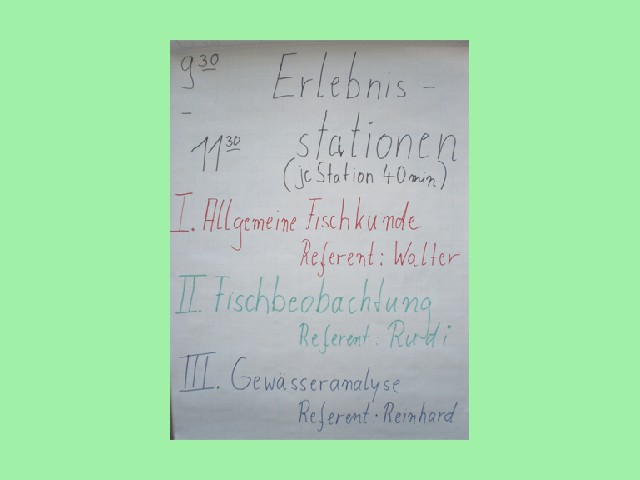 9 30 Erlebnis-
-
11 30 stationen
(je Station 40 min)
I. Allgemeine Fischkunde
Referent: Walter
II. Fischbeobachtung
Referent: Rudi
III. Gewässeranalyse
Referent: Reinhard